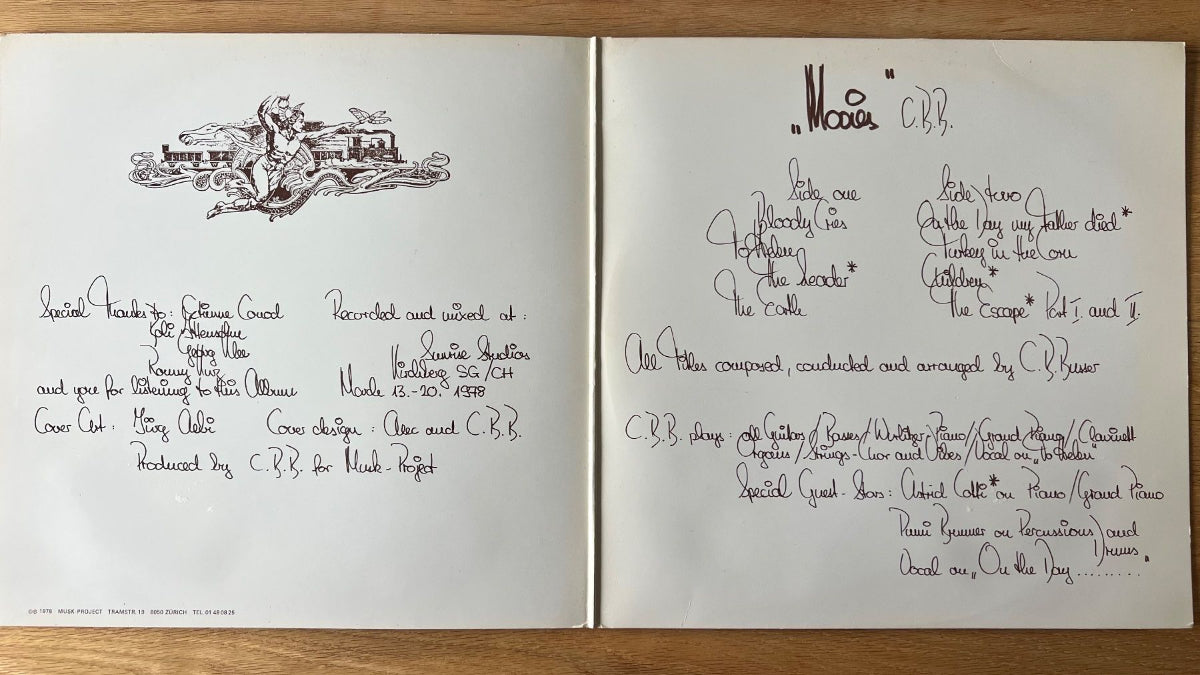 Special Thanks to: Etienne Conod
and you for listening to this Album
Recorded and mixed at :
Sunrise Studios
Kirchberg SG/CH
Made 13.-20. 1978
Cover Art : Jürg Aebi
Cover design : Alec and C.B.B.
Produced by C.B.B. for Musk-Project
©℗ 1978 MUSK PROJECT TRAMSTR. 19 8050 ZÜRICH TEL. 01 48 08 25
„Movies" C.B.B.
Side one
Bloody Cries
To Helen
The Leader*
The Earth
Side two
On the Day my Father died*
Turkey in the Corn
Children*
The Escape* Part I. and II.
All Titles composed, conducted and arranged by C.B. Busser
C.B.B. plays: all Guitars/Basses/Wurlitzer-Piano/Grand Piano/Clavinett
Organs/Strings-Chor and Vibes/Vocal on „To Helen"
Special Guest-Stars: Astrid * on Piano/Grand Piano
Brunner on Percussions and Drums
Vocal on „On the Day ........."